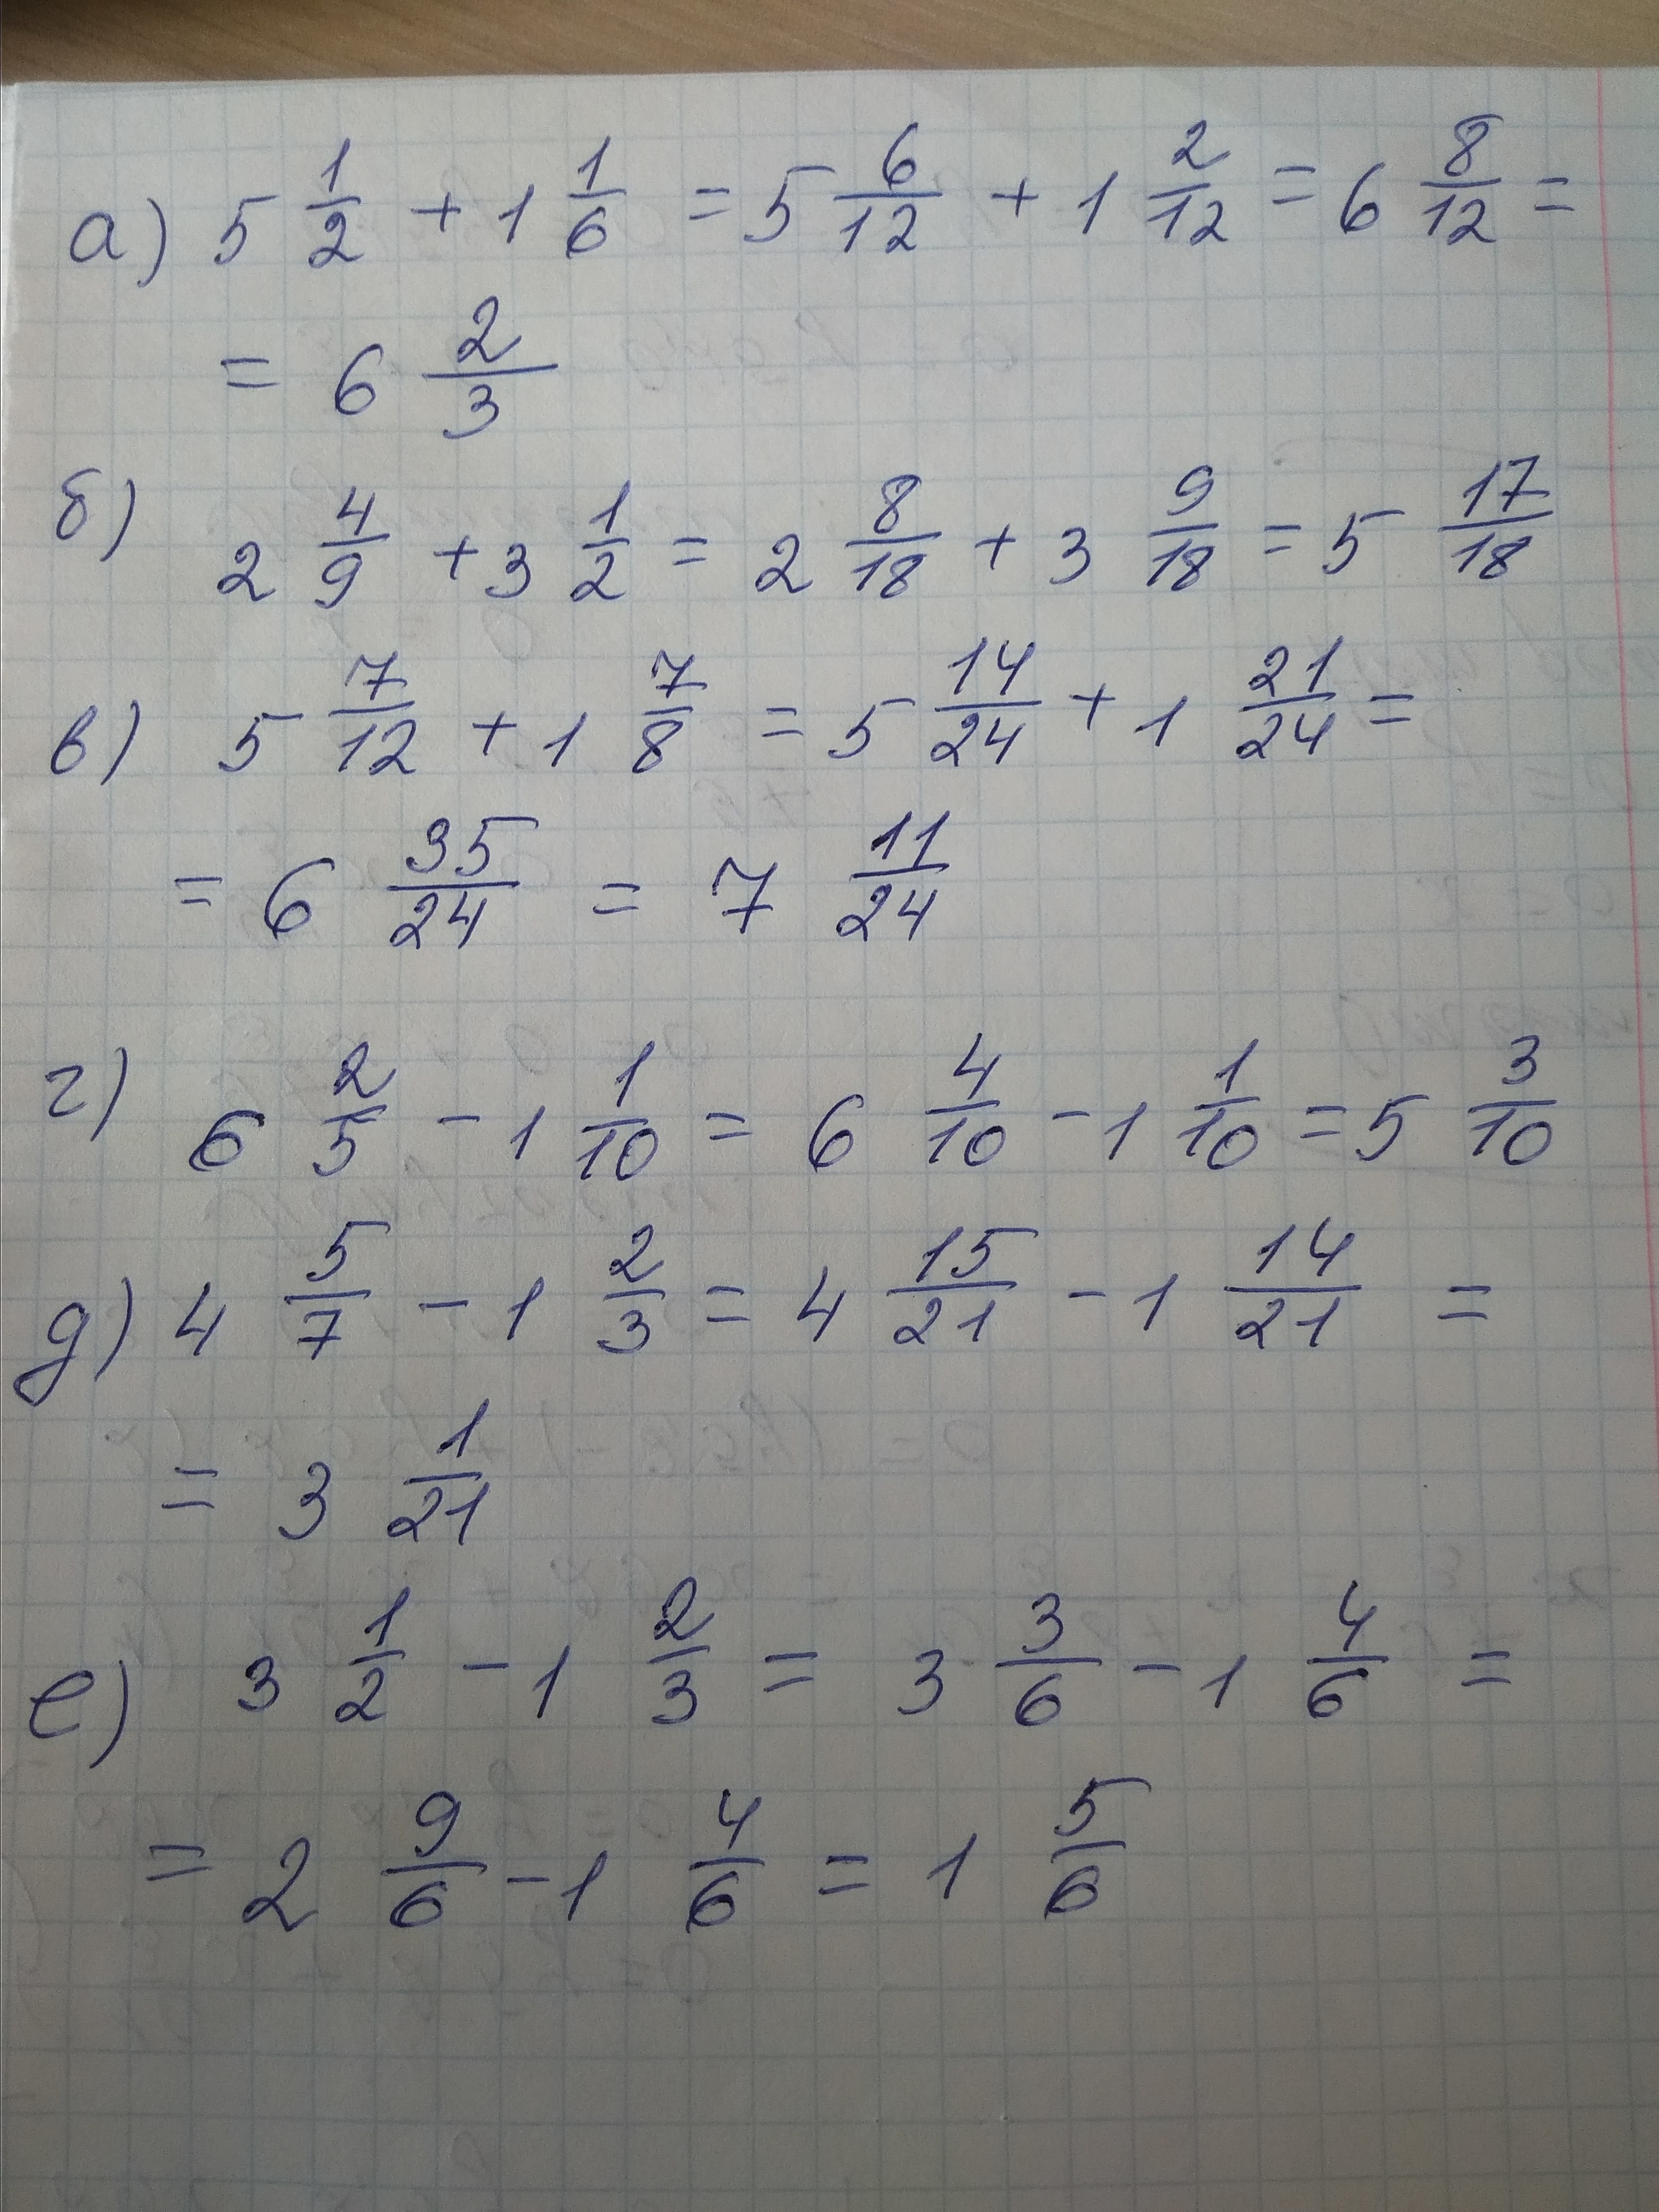 а) 5 1/2 + 1 1/6 = 5 6/12 + 1 2/12 = 6 8/12 =
= 6 2/3
б) 2 4/9 + 3 1/2 = 2 8/18 + 3 9/18 = 5 17/18
в) 5 7/12 + 1 7/8 = 5 14/24 + 1 21/24 =
= 6 35/24 = 7 11/24
г) 6 2/5 - 1 1/10 = 6 4/10 - 1 1/10 = 5 3/10
д) 4 5/7 - 1 2/3 = 4 15/21 - 1 14/21 =
= 3 1/21
е) 3 1/2 - 1 2/3 = 3 3/6 - 1 4/6 =
= 2 9/6 - 1 4/6 = 1 5/6